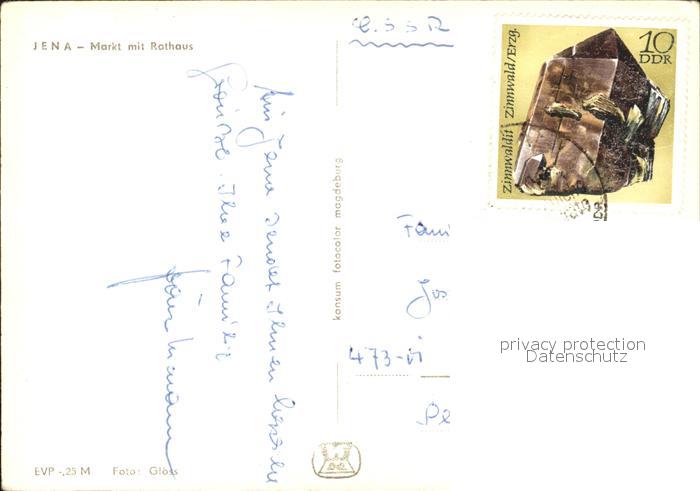 JENA – Markt mit Rathaus
Aus Jena sendet Ihnen beste
Grüße. Ihre Familie
EVP -,25 M Foto: Glöss
konsum fotocolor magdeburg
C.S.S.R
Zinnwaldit Zinnwald/Erzg.
10
DDR
Fami
Jos
473-
Pe
privacy protection
Datenschutz